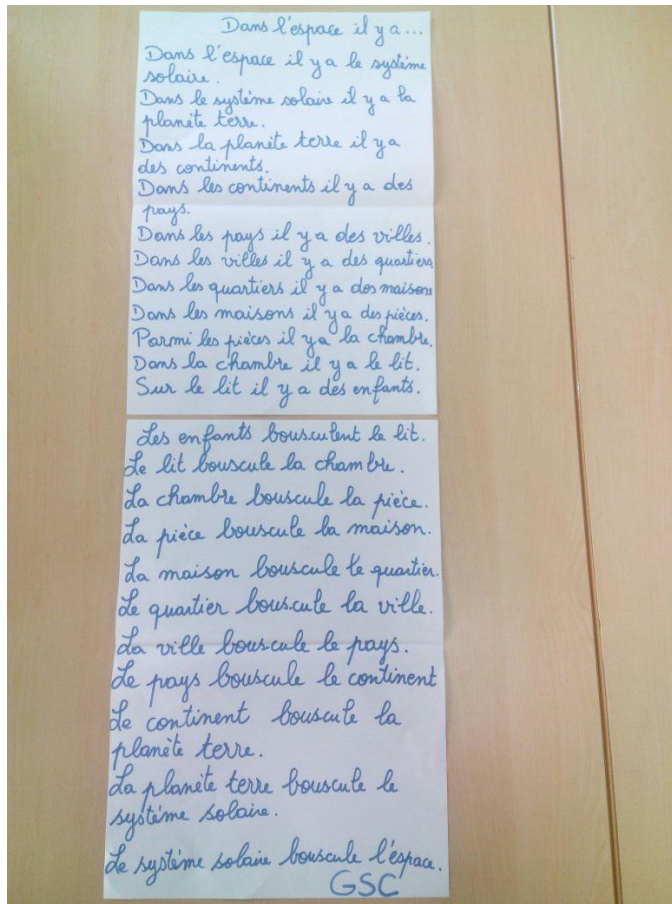 Dans l'espace il y a...
Dans l'espace il y a le système
solaire.
Dans le système solaire il y a la
planète terre.
Dans la planète terre il y a
des continents.
Dans les continents il y a des
pays.
Dans les pays il y a des villes.
Dans les villes il y a des quartiers.
Dans les quartiers il y a des maisons
Dans les maisons il y a des pièces.
Parmi les pièces il y a la chambre.
Dans la chambre il y a le lit.
Sur le lit il y a des enfants.
Les enfants bousculent le lit.
Le lit bouscule la chambre.
La chambre bouscule la pièce.
La pièce bouscule la maison.
La maison bouscule le quartier.
Le quartier bouscule la ville.
La ville bouscule le pays.
Le pays bouscule le continent
Le continent bouscule la
planète terre.
La planète terre bouscule le
système solaire.
Le système solaire bouscule l'espace.
GSC